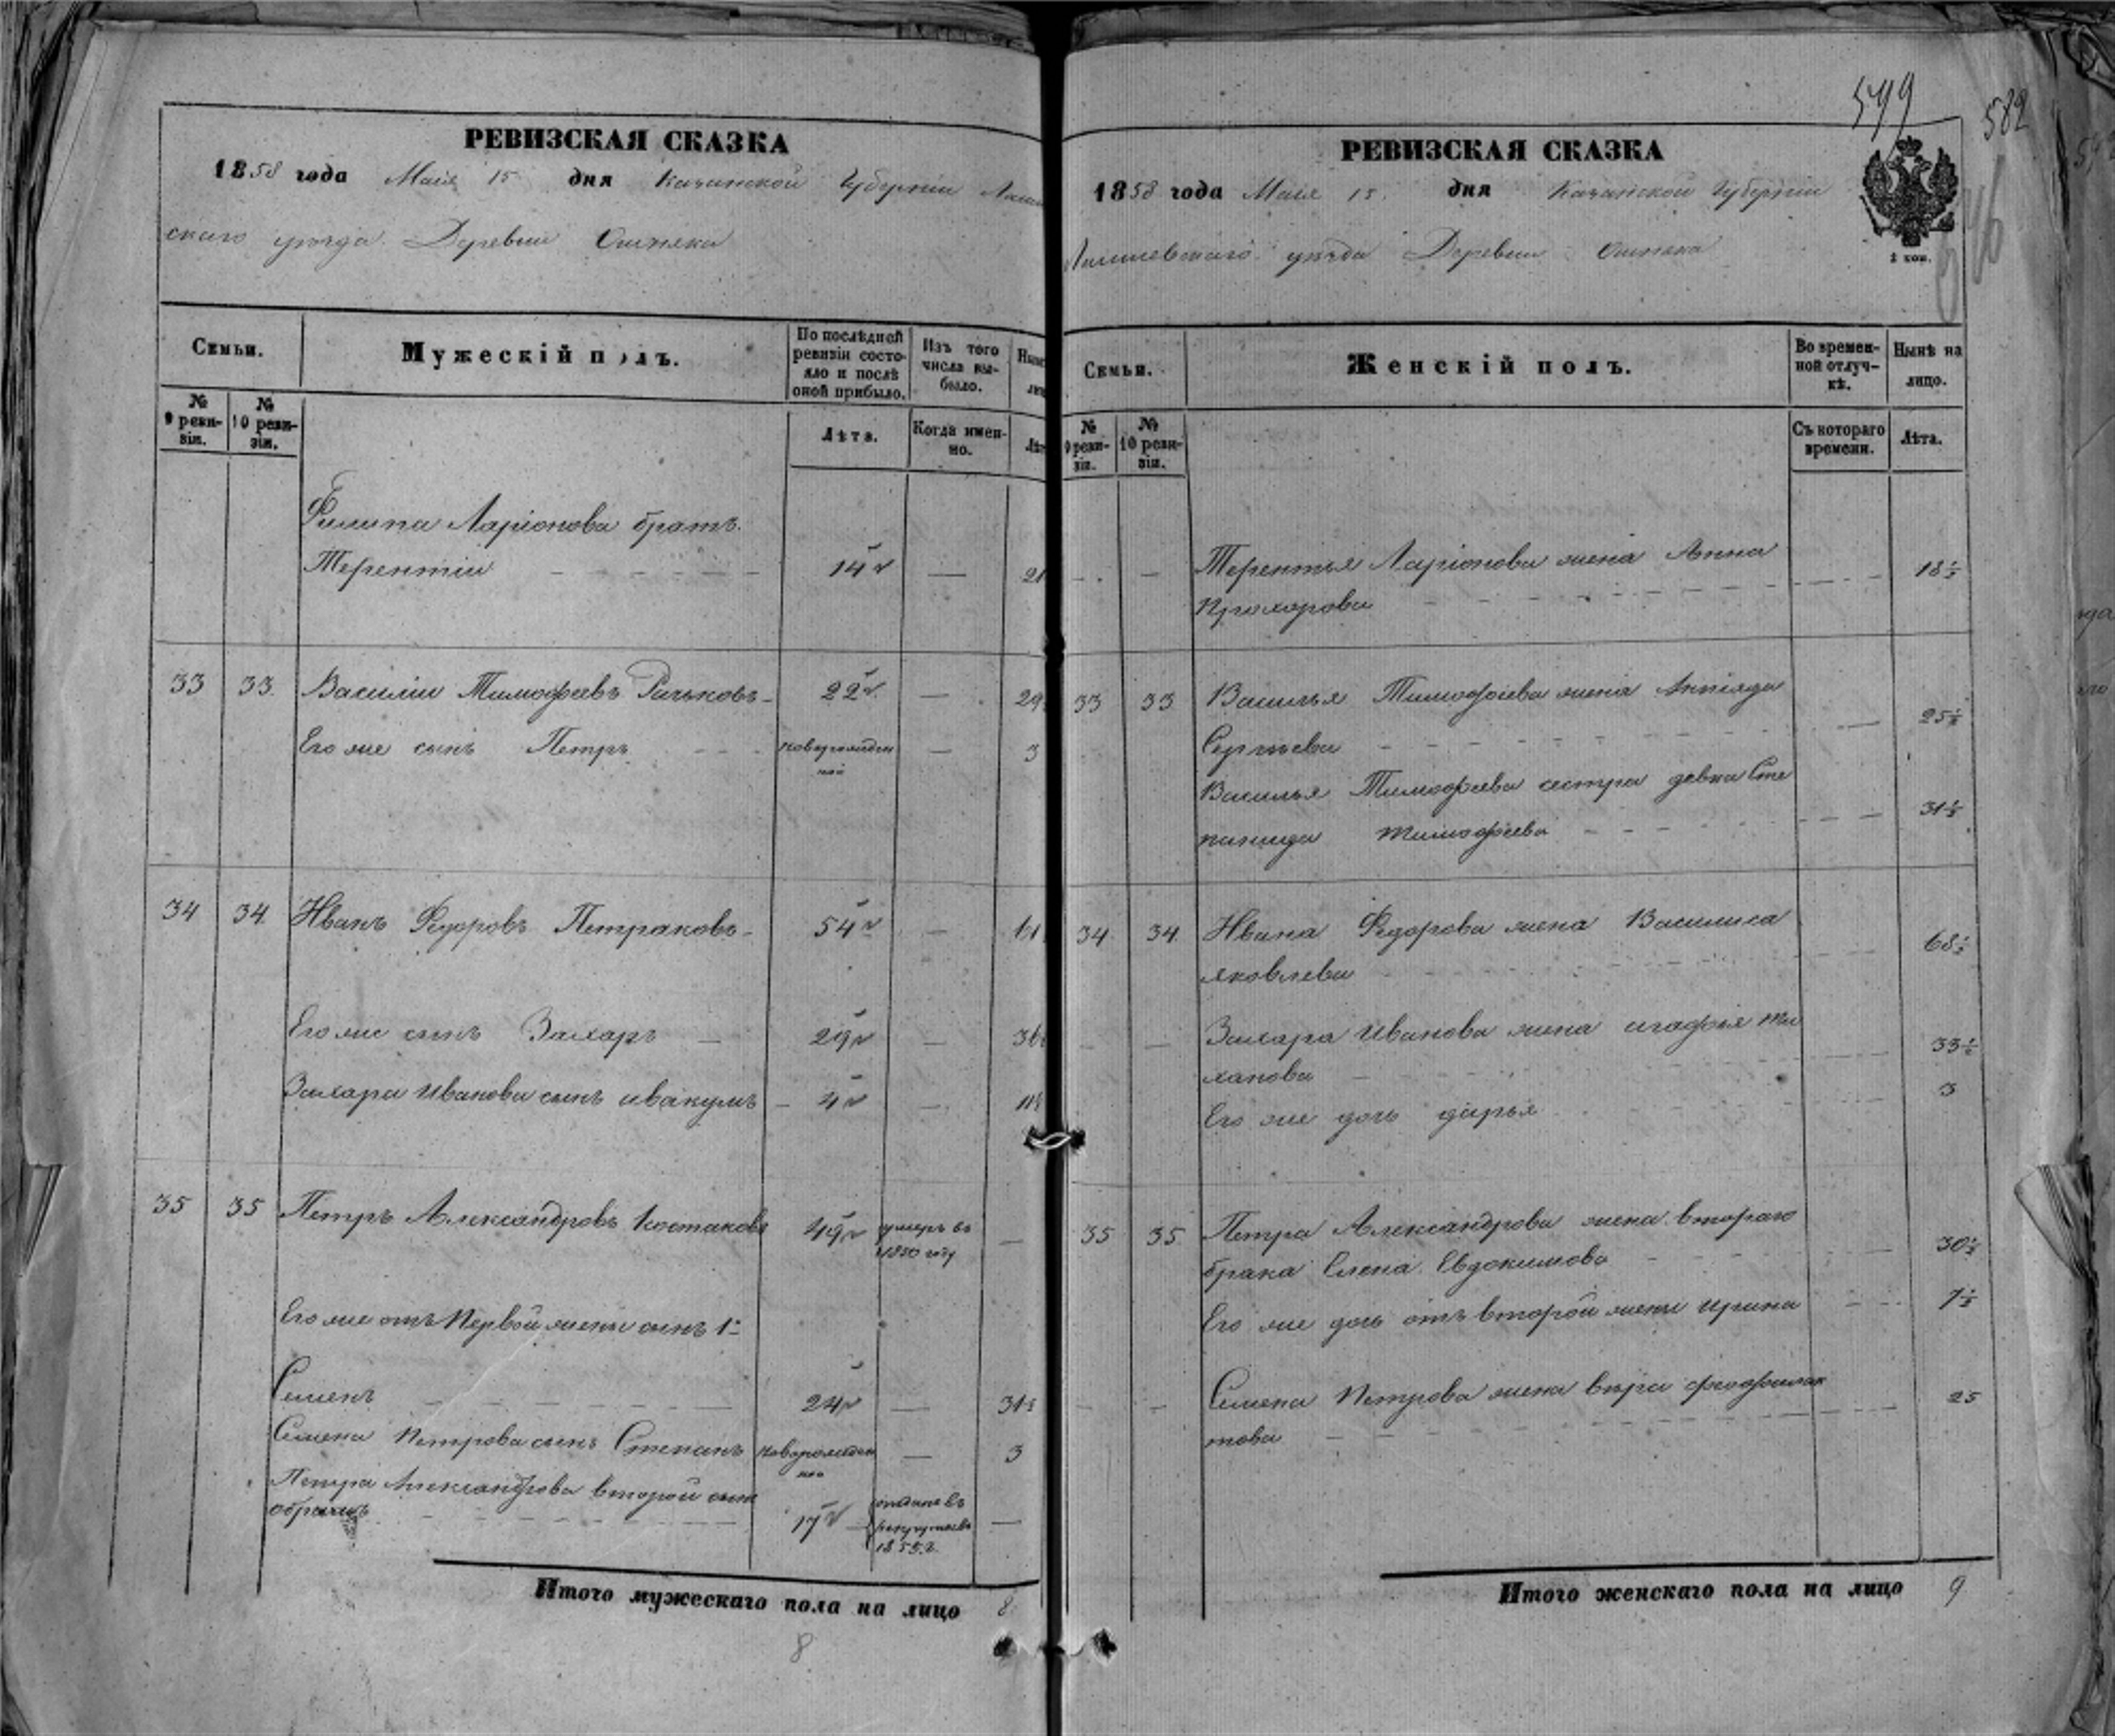 РЕВИЗСКАЯ СКАЗКА
1858 года Маія 15 дня Казанской Губерніи
скаго уѣзда Деревни Ошняка
Семьи.
Мужескій полъ.
По послѣдней ревизіи состояло и послѣ оной прибыло.
Изъ того числа выбыло.
№ 9 ревизіи.
№ 10 ревизіи.
Лѣта.
Когда именно.
Филипа Ларіонова братъ
Терентіи 14 — 21
33 33 Василіи Тимофѣевъ 22 — 29
Его же сынъ Петръ новорожден — 3
ный
34 34 Иванъ Федоровъ Петраковъ 54 — 61
Его же сынъ Захаръ 29 — 36
Захара Иванова сынъ авакумъ 4 —
35 35 Петръ Александровъ Костаковъ 49 умеръ въ —
1850 году
Его же отъ Первой жены сынъ 1й
Семенъ 24 — 31
Семена Петрова сынъ Степанъ новорожден — 3
ной
Петра Александрова второй сынъ
17 отданъ въ —
рекруты въ
1855 г.
Итого мужескаго пола на лицо 8
8
599
582
РЕВИЗСКАЯ СКАЗКА
1858 года Маія 15 дня Казанской Губерніи
Лаишевскаго уѣзда Деревни Ошняка
2 коп.
Семьи.
Женскій полъ.
Во временной отлучкѣ.
Нынѣ на лицо.
№ 9 ревизіи.
№ 10 ревизіи.
Съ котораго времени.
Лѣта.
Терентья Ларіонова жена Анна 18½
Прохорова
33 33 Василья Тимофѣева жена 25½
Сергѣева
Василья Тимофѣева сестра девка Сте
панида тимофѣева 31½
34 34 Ивана Федорова жена Василиса 68½
яковлева
Захара Иванова жена агафья
33½
Его же дочь дарья 3
35 35 Петра Александрова жена втораго
брака Елена Евдокимова 30½
Его же дочь отъ второй жены ирина 7½
Семена Петрова жена вѣра феофилак 25
това
Итого женскаго пола на лицо 9